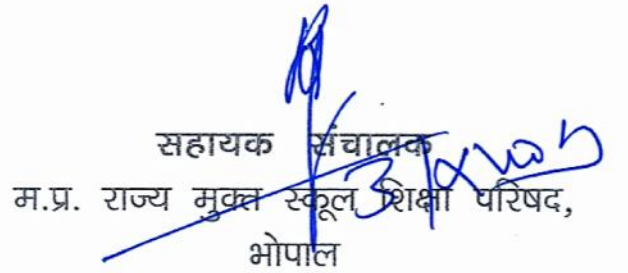 सहायक संचालक
म.प्र. राज्य मुक्त स्कूल शिक्षा परिषद,
भोपाल